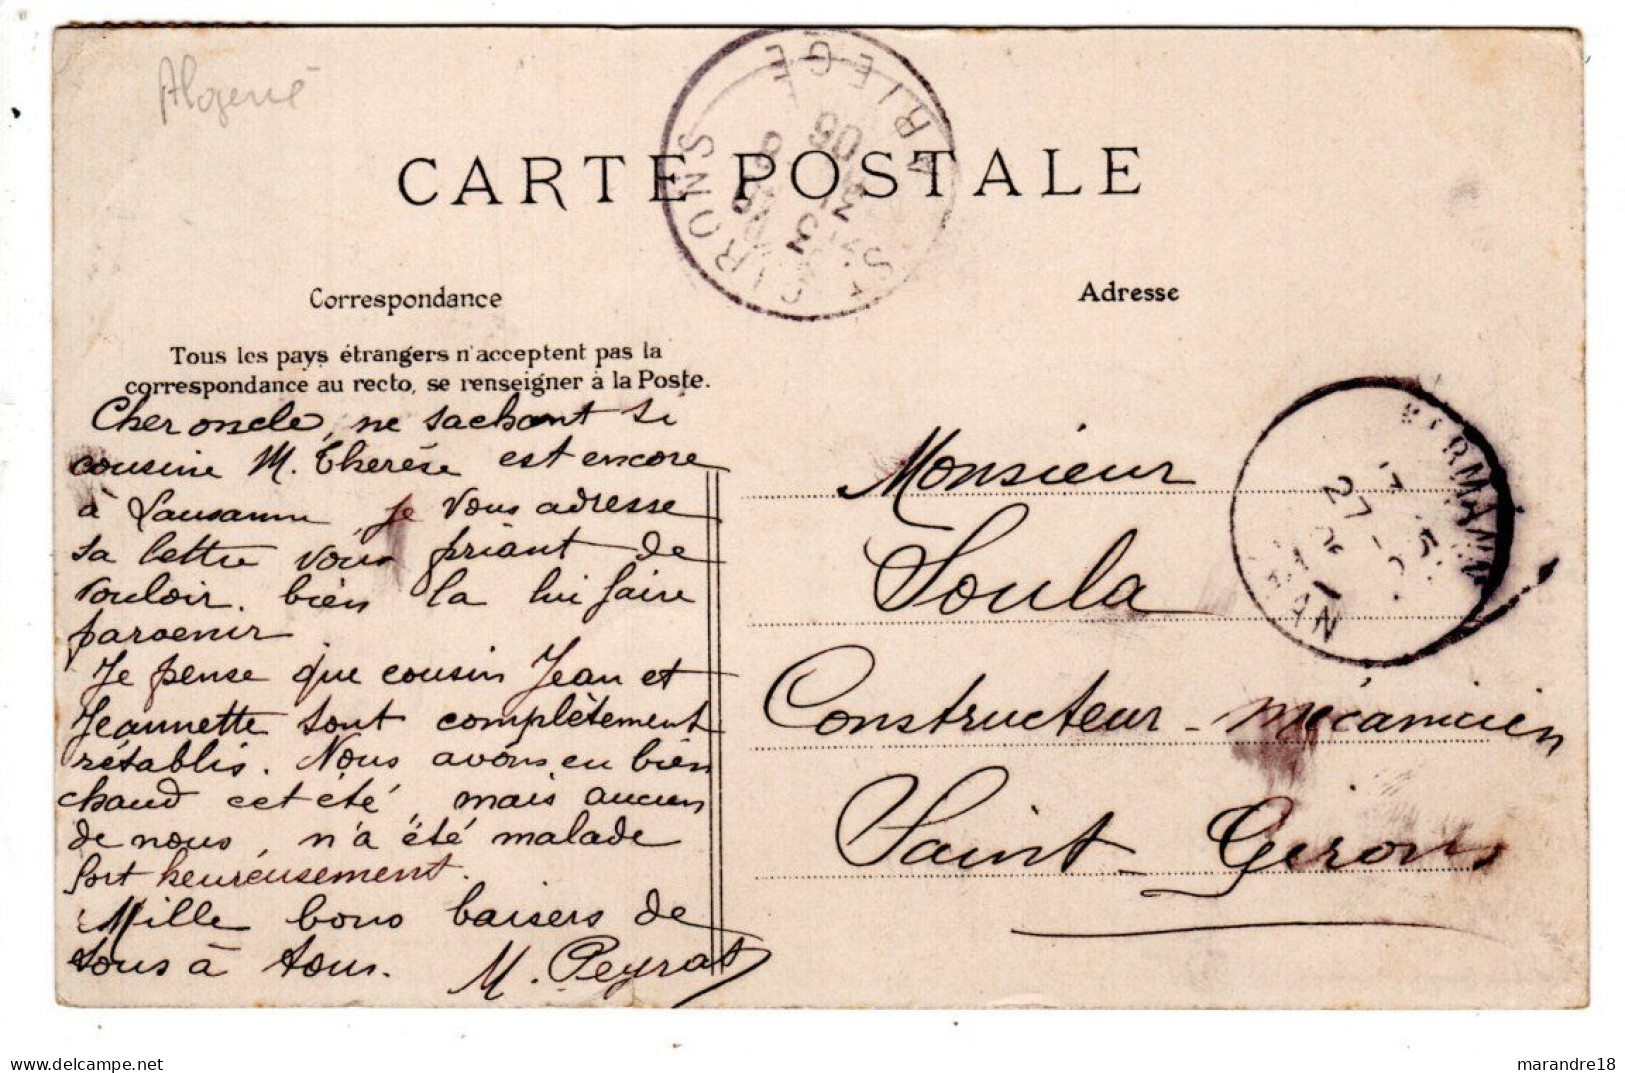 Algérie
CARTE POSTALE
ST GIRONS
ARIEGE
Correspondance
Adresse
Tous les pays étrangers n'acceptent pas la
correspondance au recto, se renseigner à la Poste.
Cher oncle, ne sachant si
cousine M. Thérèse est encore
à Lausanne, je vous adresse
sa lettre vous priant de
vouloir bien la lui faire
parvenir
Je pense que cousin Jean et
Jeannette sont complètement
rétablis. Nous avons eu bien
chaud cet été, mais aucun
de nous, n'a été malade
fort heureusement.
Mille bons baisers de
tous à tous.
M. Peyrat
Monsieur
Soula
Constructeur-mécanicien
Saint-Girons
27
delcampe.net
marandre18